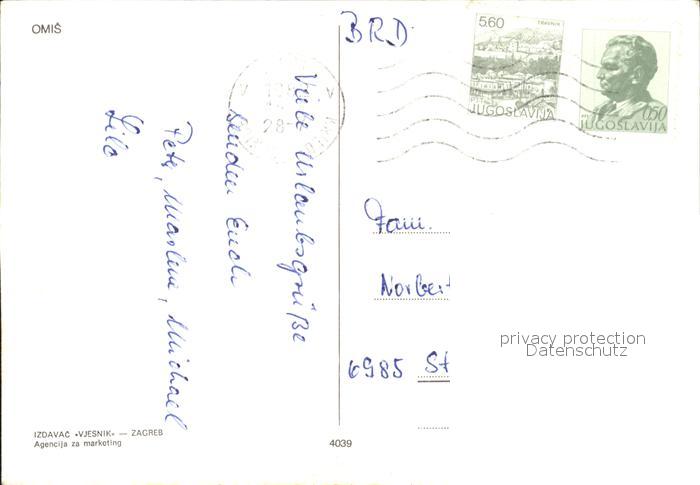 OMIŠ
BRD
5.60
TRAVNIK
JUGOSLAVIJA
0.50
JUGOSLAVIJA
28
Viele Urlaubsgrüße
senden Euch
Peter, Marlene, Michael
Lilo
Fam.
Norbert
6985 St
privacy protection
Datenschutz
IZDAVAČ «VJESNIK» — ZAGREB
Agencija za marketing
4039